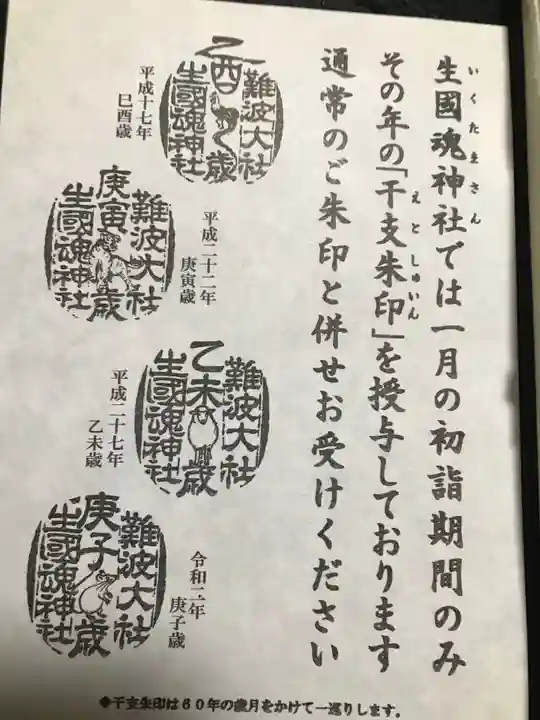 いくたまさん
生國魂神社では一月の初詣期間のみ
えとしゅいん
その年の「干支朱印」を授与しております
通常のご朱印と併せお受けください
難波大社
乙酉歳
生國魂神社
平成十七年
巳酉歳
平成二十二年
庚寅歳
難波大社
庚寅歳
生國魂神社
難波大社
乙未歳
生國魂神社
平成二十七年
乙未歳
令和二年
庚子歳
難波大社
庚子歳
生國魂神社
◆干支朱印は60年の歳月をかけて一巡りします。